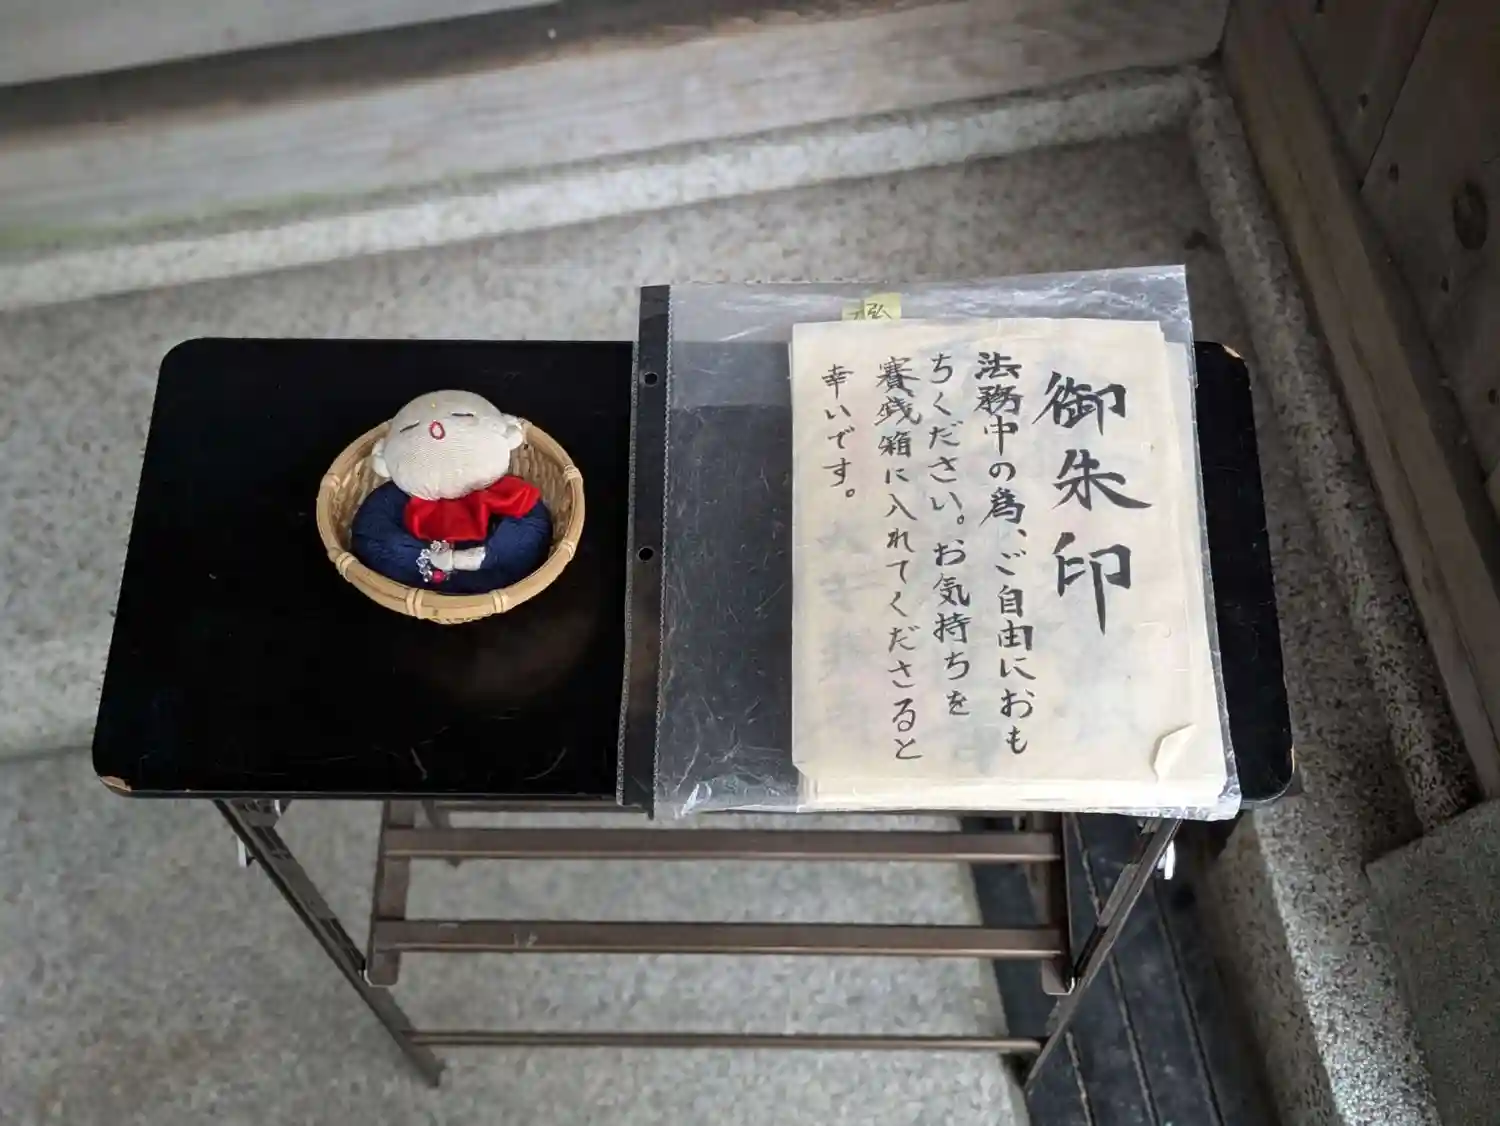 御朱印
法務中の為、ご自由におも
ちください。お気持ちを
賽銭箱に入れてくださると
幸いです。